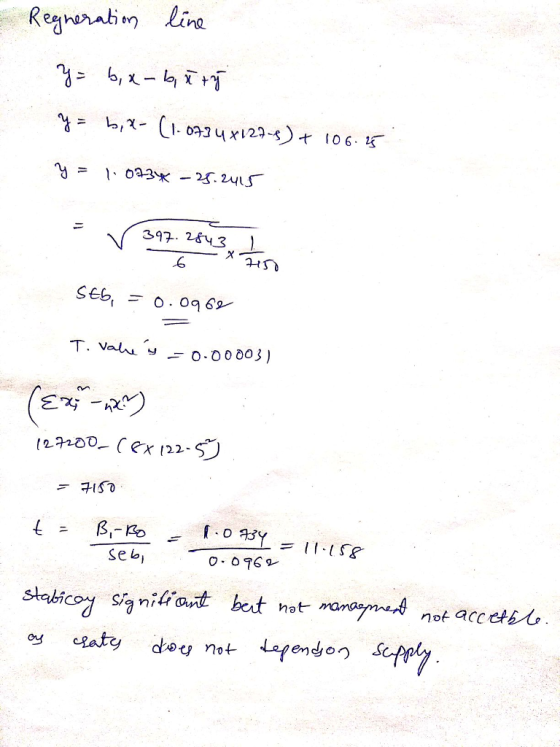 Regneration line
y = b₁x - b₁x̄ + ȳ
y = b₁x - (1.0734 x 127.5) + 106.25
y = 1.073x - 25.2415
= √(397.2843/6 x 1/7150)
Seb₁ = 0.0962
T. Value is = 0.000031
(Σxi² - nx²)
127200 - (8 x 122.5²)
= 7150
t = B₁-B0/seb₁ = 1.0734/0.0962 = 11.158
stabicay significant but not managment not accetble.
as does not dependson supply.